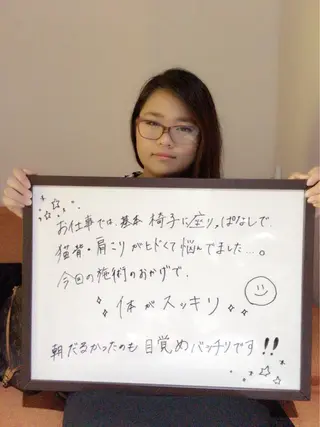 お仕事では、基本 椅子に座りっぱなしで、
猫背・肩こりがヒドくて悩んでました…。
今回の施術のおかげで、
体がスッキリ
朝だるかったのも 目覚めバッチリです!!